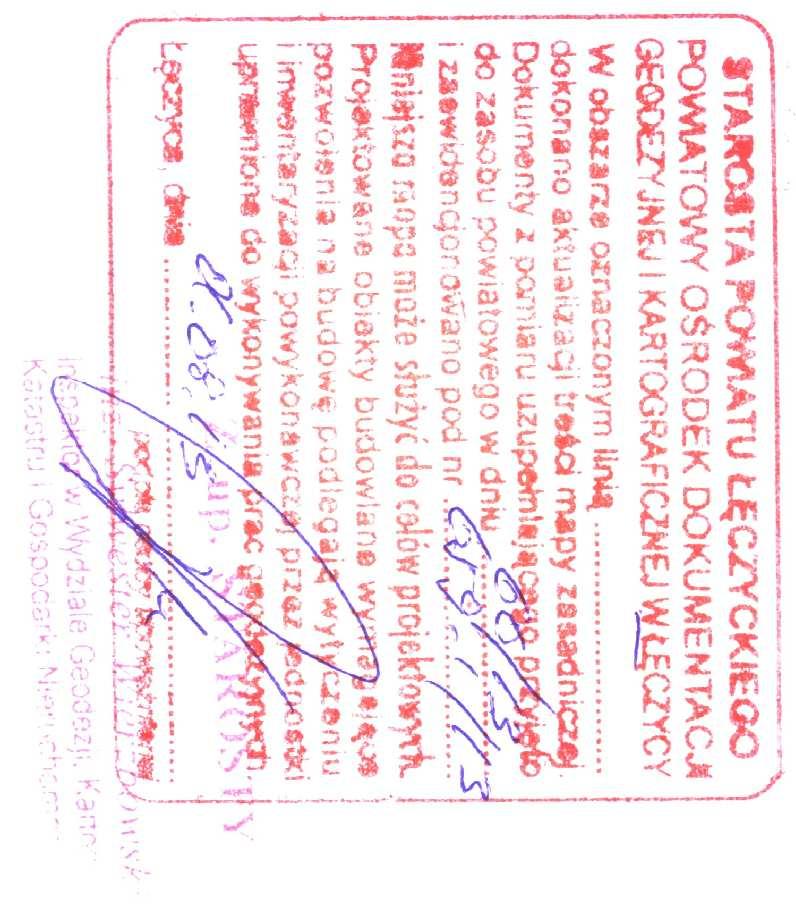 STAROSTA POWIATU ŁĘCZYCKIEGO
POWIATOWY OŚRODEK DOKUMENTACJI
GEODEZYJNEJ I KARTOGRAFICZNEJ W ŁĘCZYCY
W obszarze oznaczonym linią
dokonano aktualizacji treści mapy zasadniczej
Dokumenty z pomiaru uzupełniającego przyjęto
do zasobu powiatowego w dniu
i zaewidencjonowano pod nr
Niniejsza mapa może służyć do celów projektowych.
Projektowane obiekty budowlane wymagające
pozwolenia na budowę podlegają wytyczeniu
i inwentaryzacji powykonawczej przez jednostki
uprawnione do wykonywania prac geodezyjnych
Z up. STAROSTY
Łęczyca, dnia
Inspektor w Wydziale Geodezji,
Katastru i Gospodarki